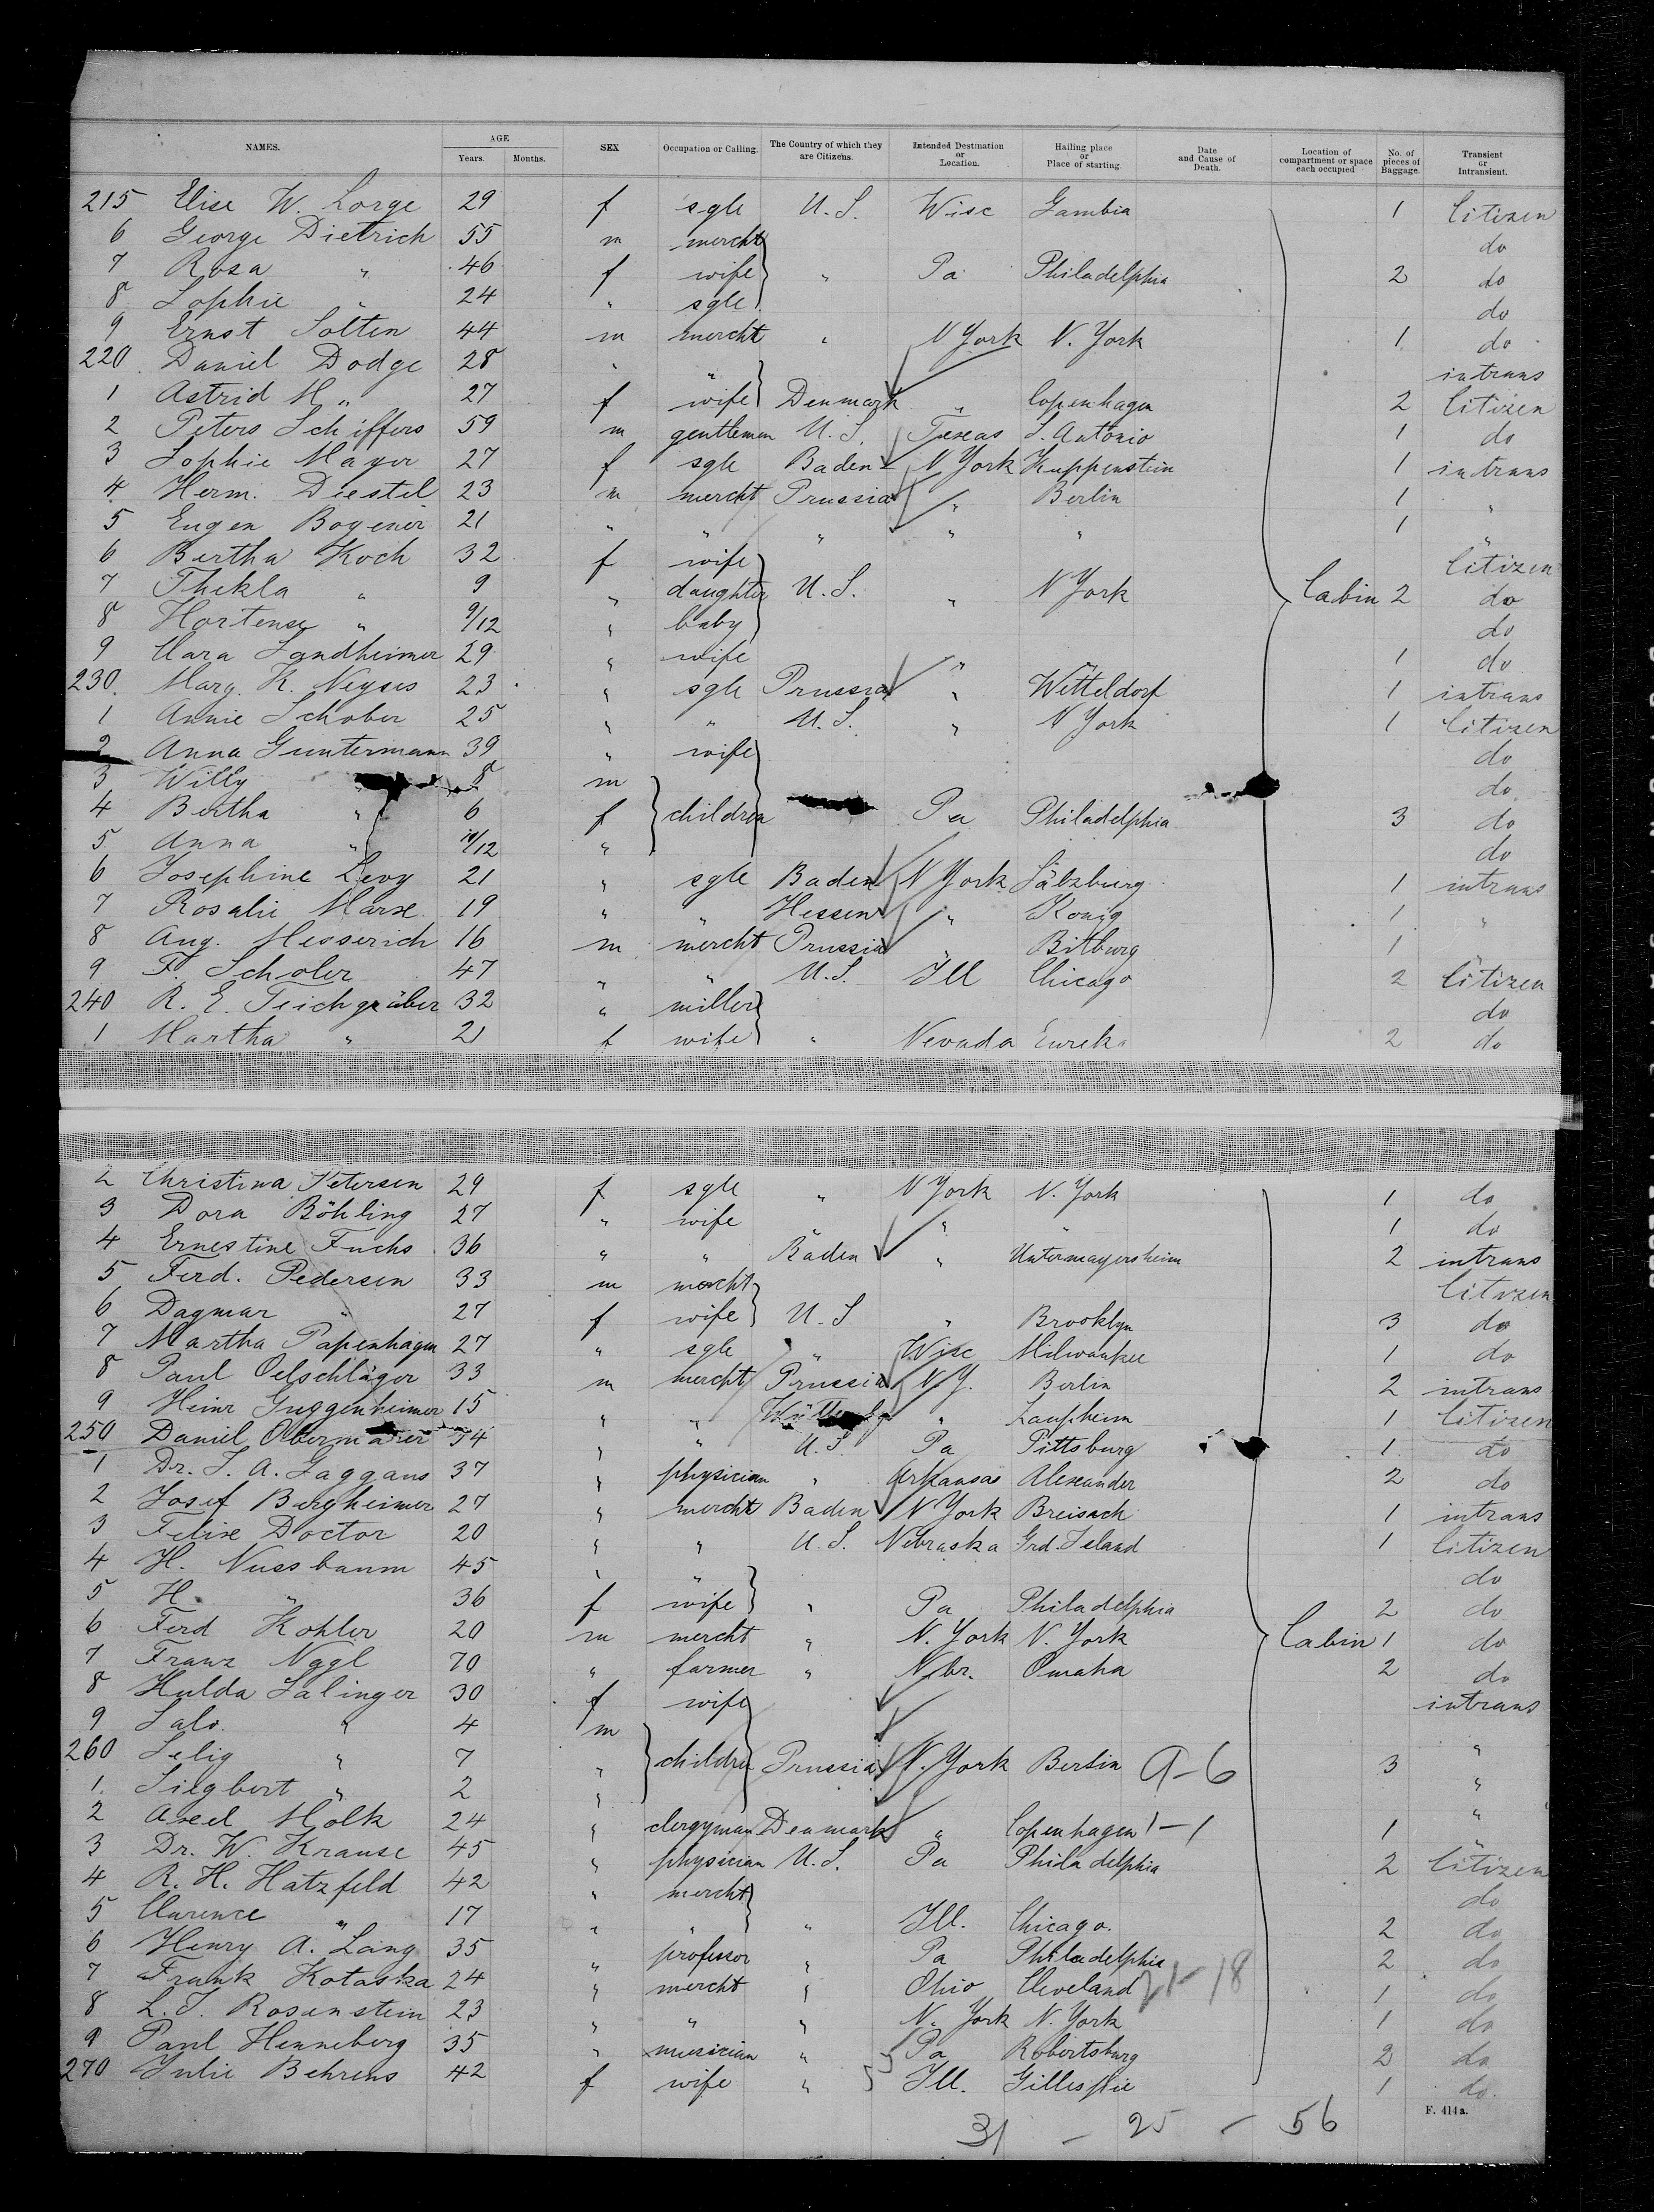 NAMES. AGE Years. Months. SEX Occupation or Calling. The Country of which they are Citizens. Intended Destination or Location. Hailing place or Place of starting. Date and Cause of Death. Location of compartment or space each occupied No. of pieces of Baggage. Transient or Intransient.
215 Elise W. Lorge 29 f sgle U.S. Wisc Gambia 1 Citizen
6 George Dietrich 55 m mercht do
7 Rosa " 46 f wife " Pa Philadelphia 2 do
8 Sophie " 24 " sgle do
9 Ernst Solten 44 m mercht " N York N. York 1 do
220 Daniel Dodge 28 " " intrans
1 Astrid M " 27 f wife Denmark " Copenhagen 2 Citizen
2 Peters Schiffers 59 m gentleman U.S. Texas S. Antonio 1 do
3 Sophie Mayer 27 f sgle Baden N York Kuppenstein 1 intrans
4 Herm. Diestel 23 m mercht Prussia " Berlin 1 "
5 Eugen Bogener 21 " " " " " 1 "
6 Bertha Koch 32 f wife Citizen
7 Thekla " 9 " daughter U.S. " N York Cabin 2 do
8 Hortense " 9/12 " baby do
9 Clara Landheimer 29 " wife " " 1 do
230. Marg. K. Neyses 23 " sgle Prussia " Wetteldorf 1 intrans
1 Annie Schober 25 " " U.S. " N York 1 Citizen
2 Anna Guntermann 39 " wife do
3 Willy 8 m do
4 Bertha " 6 f children Pa Philadelphia 3 do
5 Anna " 10/12 " do
6 Josephine Levy 21 " sgle Baden N York Sülzburg 1 intrans
7 Rosalie Marx 19 " " Hessen " König 1 "
8 Aug. Messerich 16 m mercht Prussia " Bitburg 1 "
9 F. Scholer 47 " " U.S. Ill Chicago 2 Citizen
240 R. E. Teichgräber 32 " miller do
1 Martha " 21 f wife " Nevada Eureka 2 do
2 Christina Petersen 29 f sgle " N York N. York 1 do
3 Dora Böhling 27 " wife " " 1 do
4 Ernestine Fuchs 36 " " Baden " Untermayersheim 2 intrans
5 Ferd. Pedersen 33 m mercht Citizen
6 Dagmar " 27 f wife U.S " Brooklyn 3 do
7 Martha Papenhagen 27 " sgle " Wisc Milwaukee 1 do
8 Paul Oelschläger 33 m mercht Prussia N.Y. Berlin 2 intrans
9 Heinr Guggenheimer 15 " " " Laupheim 1 Citizen
250 Daniel Obermaier 54 " " U.S. Pa Pittsburg 1 do
1 Dr. S. A. Gaggans 37 " physician " Arkansas Alexander 2 do
2 Josef Bergheimer 27 " mercht Baden N York Breisach 1 intrans
3 Felix Doctor 20 " " U.S. Nebraska Grd. Island 1 Citizen
4 H. Nussbaum 45 " " do
5 H. " 36 f wife " Pa Philadelphia 2 do
6 Ferd Kohler 20 m mercht " N. York N. York Cabin 1 do
7 Franz Nagl 70 " farmer " Nebr. Omaha 2 do
8 Hulda Salinger 30 f wife intrans
9 Salo. " 4 m "
260 Selig " 7 " children Prussia N. York Berlin 9-6 3 "
1. Siegbert " 2 " "
2 Axel Molk 24 " clergyman Denmark " Copenhagen 1-1 1 "
3 Dr. W. Krause 45 " physician U.S. Pa Philadelphia 2 Citizen
4 R. H. Hatzfeld 42 " mercht do
5 Clarence " 17 " " " Ill. Chicago. 2 do
6 Henry A. Lang 35 " professor " Pa Philadelphia 2 do
7 Frank Kotaska 24 " mercht " Ohio Cleveland 21-18 1 do
8 L. S. Rosenstein 23 " " " N. York N. York 1 do
9 Paul Henneberg 35 " musician " Pa Robertsburg 2 do
270 Julie Behrens 42 f wife " Ill. Gillespie 1 do.
F. 414a.
31 - 25 - 56